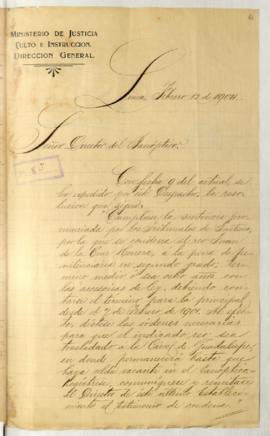 MINISTERIO DE JUSTICIA
CULTO É INSTRUCCION.
DIRECCION GENERAL.
Lima, Febrero 13 de 1904.
Señor Director del Panóptico.
Con fecha 9 del actual se
ha expedido por este Despacho, la reso-
lucion que sigue:
"Cúmplase la sentencia pro-
nunciada por los Tribunales de Justicia,
por la que se condena al reo Juan
de la Cruz á la pena de pe-
nitenciaria en segundo grado, término
medio ó sea ocho años con
las accesorias de ley, debiendo con-
tarse el término para la principal
desde el 7 de Febrero de 1900. Al efec-
to, dictese las órdenes necesarias
para que el indicado reo sea
trasladado á la Carcel de Guadalupe,
en donde permanecerá hasta que
haya celda vacante en el Panóptico.
Regístrese, comuníquese y remítase
al Director de este último Estableci-
miento el testimonio de condena".